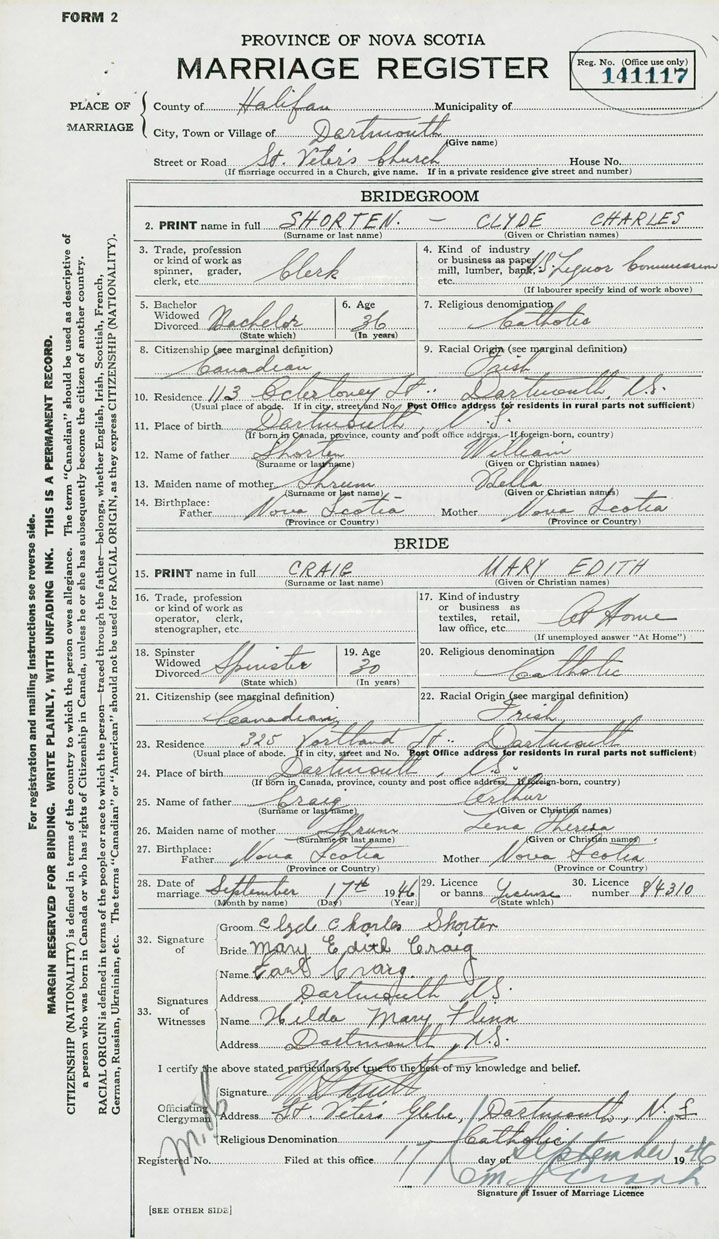 FORM 2
PROVINCE OF NOVA SCOTIA
MARRIAGE REGISTER
Reg. No. (Office use only)
141117
PLACE OF MARRIAGE
County of Halifax Municipality of
City, Town or Village of Dartmouth
(Give name)
Street or Road St. Peter's Church House No.
(If marriage occurred in a Church, give name. If in a private residence give street and number)
BRIDEGROOM
2. PRINT name in full SHORTEN. - CLYDE CHARLES
(Surname or last name) (Given or Christian names)
3. Trade, profession or kind of work as spinner, grader, clerk, etc. Clerk
4. Kind of industry or business as paper mill, lumber, bank, etc. Liquor Commission
(If labourer specify kind of work above)
5. Bachelor Widowed Divorced Bachelor
(State which)
6. Age 36
(In years)
7. Religious denomination Catholic
8. Citizenship (see marginal definition) Canadian
9. Racial Origin (see marginal definition) Irish
10. Residence 113 St.: Dartmouth, N.S.
(Usual place of abode. If in city, street and No. Post Office address for residents in rural parts not sufficient)
11. Place of birth Dartmouth, N.S.
(If born in Canada, province, county and post office address. If foreign-born, country)
12. Name of father Shorten William
(Surname or last name) (Given or Christian names)
13. Maiden name of mother Shrum Bella
(Surname or last name) (Given or Christian names)
14. Birthplace: Father Nova Scotia Mother Nova Scotia
(Province or Country) (Province or Country)
BRIDE
15. PRINT name in full CRAIG MARY EDITH
(Surname or last name) (Given or Christian names)
16. Trade, profession or kind of work as operator, clerk, stenographer, etc.
17. Kind of industry or business as textiles, retail, law office, etc. At Home
(If unemployed answer "At Home")
18. Spinster Widowed Divorced Spinster
(State which)
19. Age 30
(In years)
20. Religious denomination Catholic
21. Citizenship (see marginal definition) Canadian
22. Racial Origin (see marginal definition) Irish
23. Residence 325 Portland St.: Dartmouth
(Usual place of abode. If in city, street and No. Post Office address for residents in rural parts not sufficient)
24. Place of birth Dartmouth, N.S.
(If born in Canada, province, county and post office address. If foreign-born, country)
25. Name of father Craig Arthur
(Surname or last name) (Given or Christian names)
26. Maiden name of mother Shrum Lena Theresa
(Surname or last name) (Given or Christian names)
27. Birthplace: Father Nova Scotia Mother Nova Scotia
(Province or Country) (Province or Country)
28. Date of marriage September 17th 1946
(Month by name) (Day) (Year)
29. Licence or banns License
(State which)
30. Licence number 84310
32. Signature of
Groom Clyd Charles Shorten
Bride Mary Edith Craig
33. Signatures of Witnesses
Name Earl Craig.
Address Dartmouth N.S.
Name Hilda Mary Flinn
Address Dartmouth, N.S.
I certify the above stated particulars are true to the best of my knowledge and belief.
Officiating Clergyman
Signature
Address St. Peters Glebe, Dartmouth, N.S
Religious Denomination Catholic
Registered No. Filed at this office 17 day of September 1946
Signature of Issuer of Marriage Licence
[SEE OTHER SIDE]
For registration and mailing instructions see reverse side.
MARGIN RESERVED FOR BINDING. WRITE PLAINLY, WITH UNFADING INK. THIS IS A PERMANENT RECORD.
CITIZENSHIP (NATIONALITY) is defined in terms of the country to which the person owes allegiance. The term "Canadian" should be used as descriptive of
a person who was born in Canada or who has rights of Citizenship in Canada, unless he or she has subsequently become the citizen of another country.
RACIAL ORIGIN is defined in terms of the people or race to which the person—traced through the father—belongs, whether English, Irish, Scottish, French,
German, Russian, Ukrainian, etc. The terms "Canadian" or "American" should not be used for RACIAL ORIGIN, as they express CITIZENSHIP (NATIONALITY).